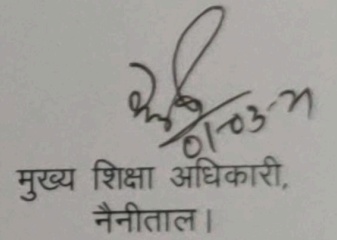 01-03-21
मुख्य शिक्षा अधिकारी,
नैनीताल।